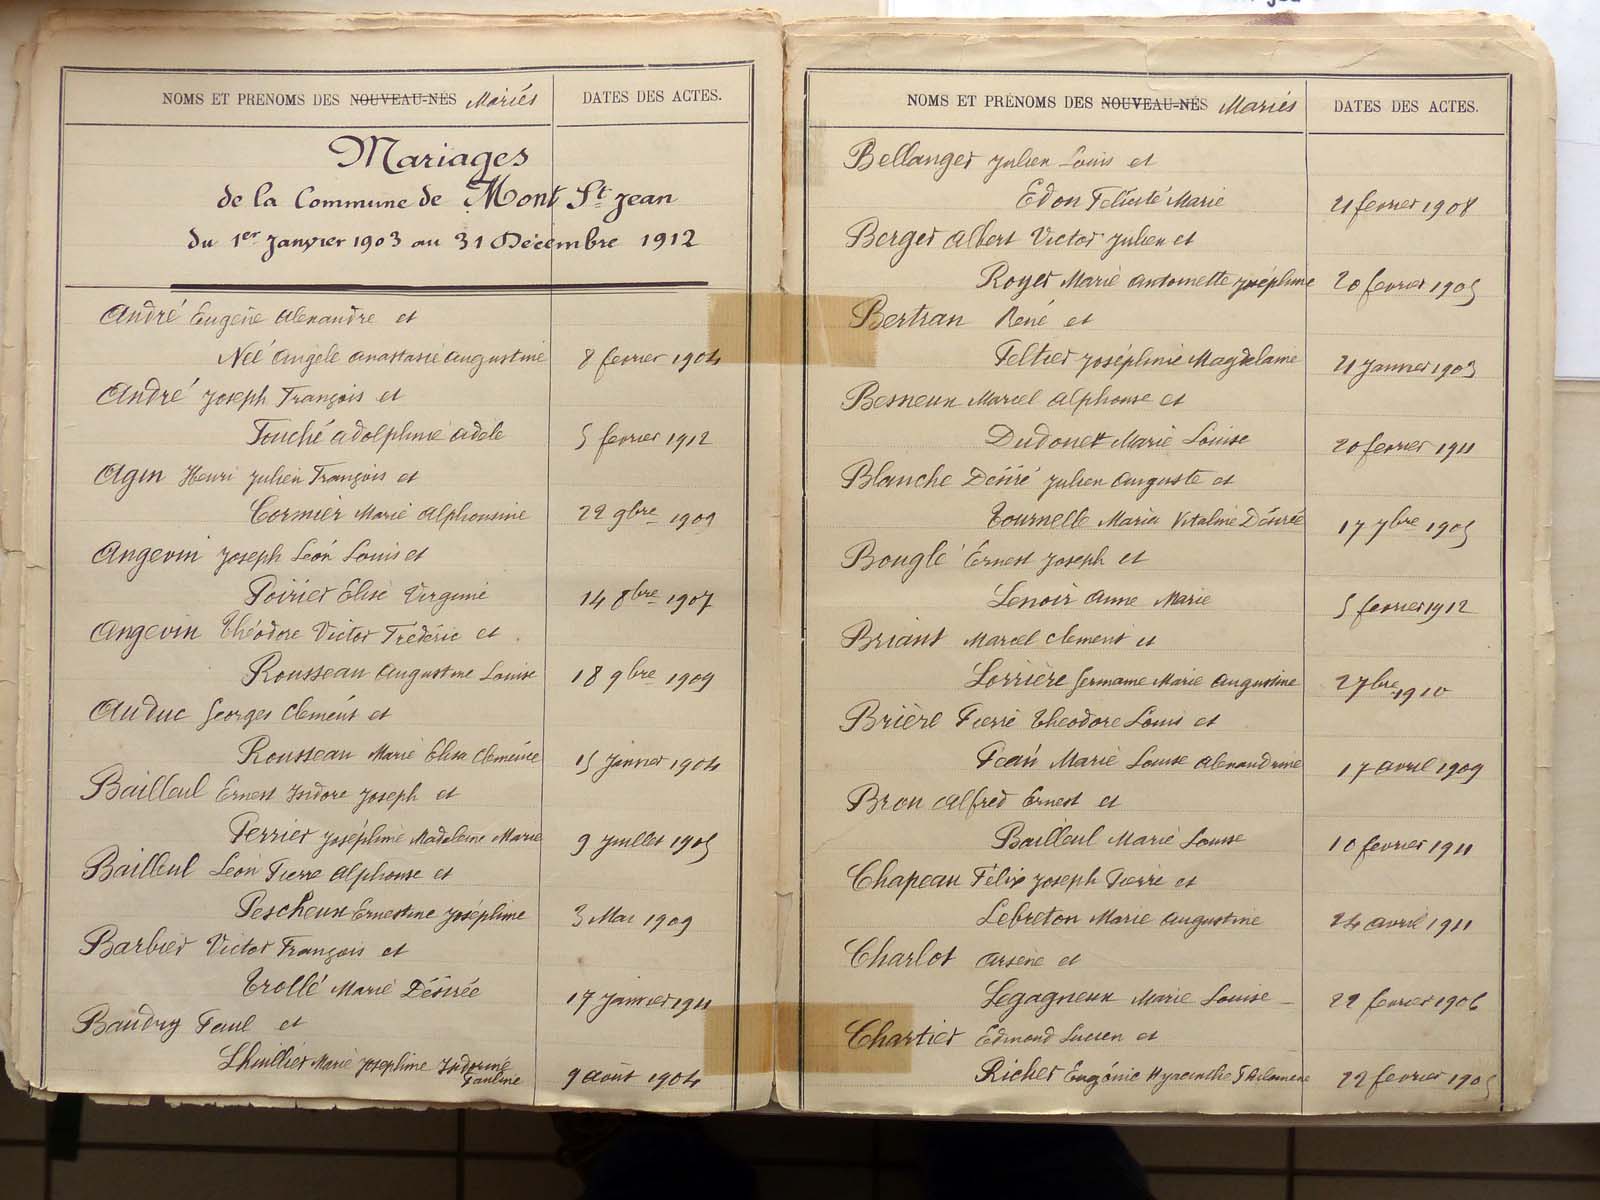 NOMS ET PRENOMS DES NOUVEAU-NÉS Mariés DATES DES ACTES.
Mariages
de la Commune de Mont St Jean
du 1er Janvier 1903 au 31 Décembre 1912
André Eugène Alexandre et
Née Angèle Anastasie Augustine 8 fevrier 1904
André Joseph François et
Touché Adolphine Adèle 5 fevrier 1912
Agin Henri Julien François et
Cormier Marie Alphonsine 22 9bre
Angevin Joseph Léon Louis et
Poirier Elise Virginie 14 8bre 1907
Angevin Théodore Victor Frédéric et
Rousseau Augustine Louise 18 9bre 1909
Auduc Georges Clément et
Rousseau Marie Elisa Clemence 15 Janvier 1904
Bailleul Ernest Isidore Joseph et
Perrier Joséphine Madeleine Marie 9 Juillet 1905
Bailleul Léon Pierre Alphonse et
Pescheux Ernestine Joséphine 3 Mai 1909
Barbier Victor François et
Trollé Marie Désirée 17 Janvier 1911
Baudry Paul et
Lhuillier Marie Josephine
Pauline 9 août 1904
NOMS ET PRÉNOMS DES NOUVEAU-NÉS Mariés DATES DES ACTES.
Bellanger Julien Louis et
Edon Félicité Marie 21 fevrier 1908
Berger Albert Victor Julien et
Royer Marie Antoinette Joséphine 20 fevrier 1905
Bertran René et
Peltier Joséphine Magdelaine 21 Janvier 1903
Besneux Marcel Alphonse et
Dudouet Marie Louise 20 fevrier 1911
Blanche Désiré Julien Auguste et
Tournelle Maria Vitaline Désirée 17 7bre 1905
Bouglé Ernest Joseph et
Lenoir Anne Marie 5 fevrier 1912
Briant Marcel Clement et
Lorrière Germaine Marie Augustine 27bre 1910
Brière Pierre Théodore Louis et
Péan Marie Louise Alexandrine 17 avril 1909
Bron Alfred Ernest et
Bailleul Marie Louise 10 fevrier 1911
Chapeau Félix Joseph Pierre et
Lebreton Marie Augustine 24 avril 1911
Charlot Arsène et
Legagneux Marie Louise 22 fevrier 1906
Chartier Edmond Lucien et
Richer Eugénie Hyacinthe Philomène 22 fevrier 1905